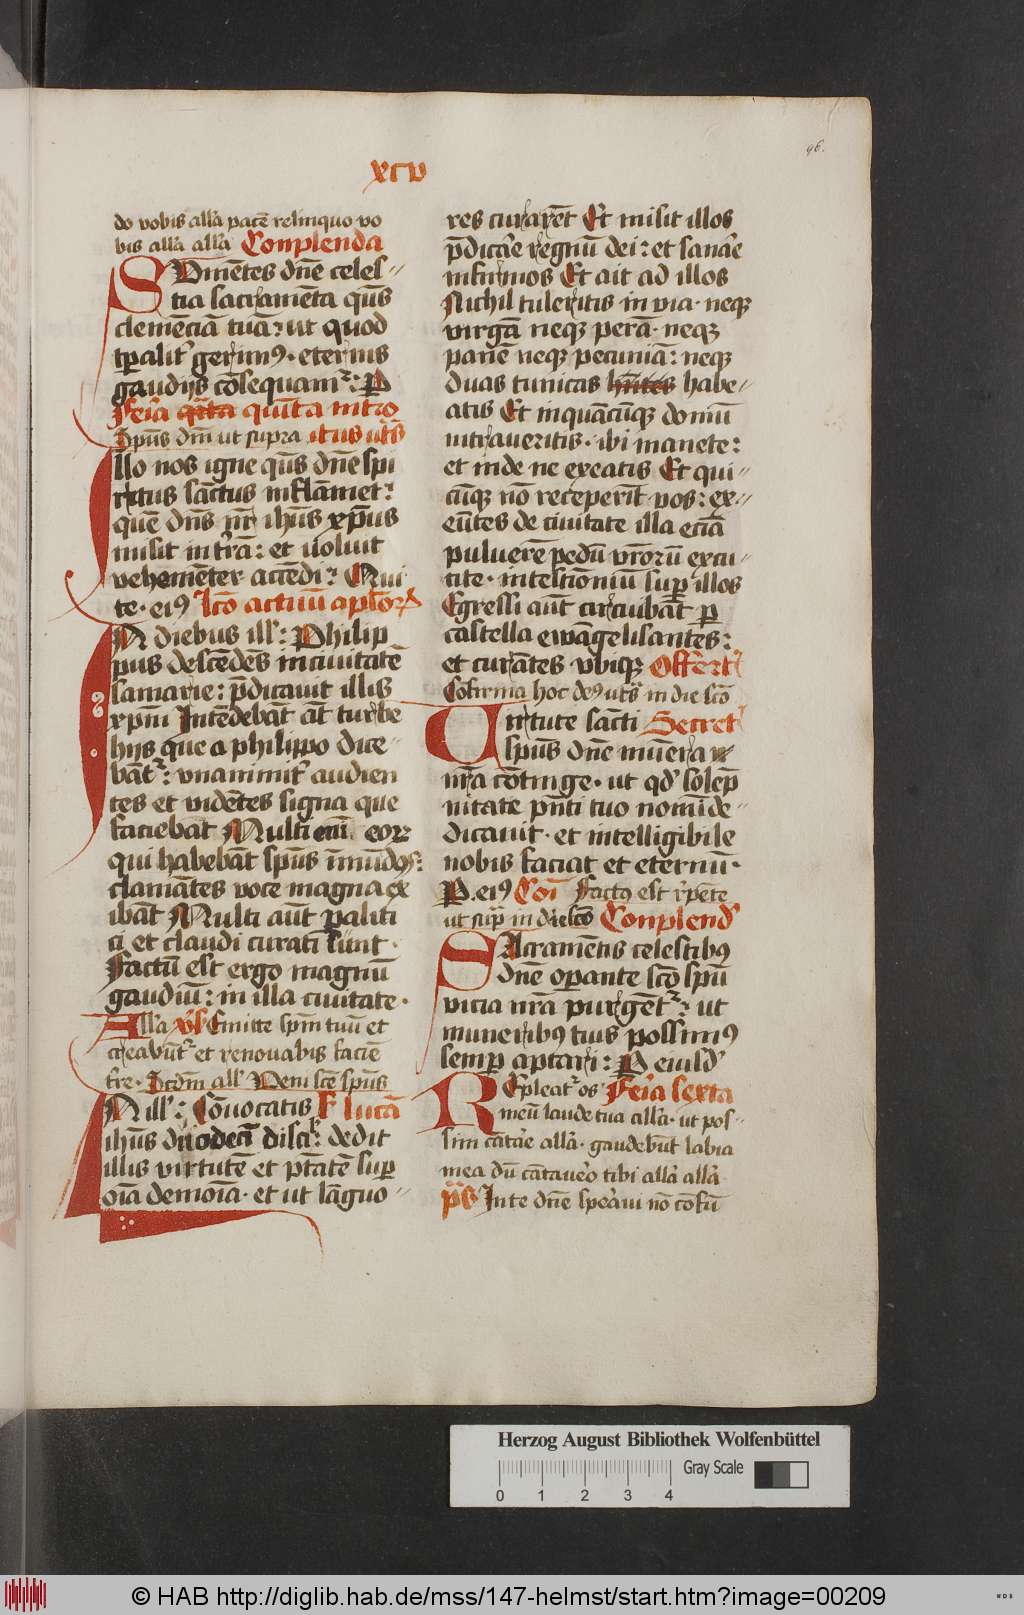 96.
xcv
do vobis all'a pacē relinquo vo
bis all'a all'a Conplenda
Sumētes dn̄e celes-
tia sacramēta qūs
clemēciā tuā: ut quod
tꝑalit' gerim9. eternis
gaudijs cōsequam': ꝑ
Fer'ia quīta intro
Sp̄us dn̄i ut supra itus ut's
Illo nos igne qūs dn̄e spi
ritus sāctus inflāmet:
quē dn̄s nr̄ ihūs xp̄us
misit in t'rā: et uoluit
vehemēter accēdi: Qui
te. ei9 Lc̄o actuū apl'oꝝ
In diebus ill': Philip
pus descēdēs in ciuitatē
samarie: p̄dicauit illis
xp̄m Intēdebāt āt turbe
hijs que a philippo dice-
bāt': vnanimit' audien
tes et vidētes signa que
faciebāt Multi eni eoꝝ
qui habebāt sp̄us īmūdos:
clamātes voce magna ex
ibāt Multi aūt ꝑaliti
ci et claudi curati sunt.
Factū est ergo magnū
gaudiū: in illa ciuitate.
All'a v's Emitte sp̄m tuū et
creabūt' et renouabis faciē
t're. Scdm all' Veni sc̄e sp̄us
In ill': Cōuocatis F lucā
ihūs duodecī discī: dedit
illis virtutē et ptātē suꝑ
oīa demoīa. et ut lāguo-
res curarēt Et misit illos
p̄dicāe regnū dei: et sanāe
infirmos Et ait ad illos
Nichil tuleritis in via. neqꝫ
virgā neqꝫ perā. neqꝫ
panē neqꝫ pecuniā: neqꝫ
duas tunicas habe-
atis Et in quācūqꝫ domū
intraueritis. ibi manete:
et inde ne exeatis Et qui-
cūqꝫ nō receperīt vos: ex-
eūtes de ciuitate illa eciā
puluerē pedū vr̄orū excu-
tite. in testioniū suꝑ illos
Egressi aūt circuibāt ꝑ
castella ewāgelisantes:
et curātes vbiqꝫ Offert'
Cōfirma hoc de9 ut s' in die sc̄o
Uirtute sācti Secret'
sp̄us dn̄e mūera
nr̄a cōtinge. ut qd' solēp
nitate p̄nti tuo nomī de-
dicauit. et intelligibile
nobis faciat et eternū.
P. ei9 Cōi Factus est rēpēte
ut sup̄ in die sc̄o Conplend'
Sacramētis celestibꝰ
dn̄e operante sc̄o sp̄ū
vicia nr̄a purgēt': ut
muneribꝰ tuis possim9
semꝑ aptari: P eiusd'
Repleat' os Fer'ia sexta
meū laude tua all'a. ut pos-
sim cātāe all'a. gaudebūt labia
mea dū cātauero tibi all'a all'a
p̄s In te dn̄e speāui nō cōfū
Herzog August Bibliothek Wolfenbüttel
Gray Scale
0 1 2 3 4
© HAB http://diglib.hab.de/mss/147-helmst/start.htm?image=00209